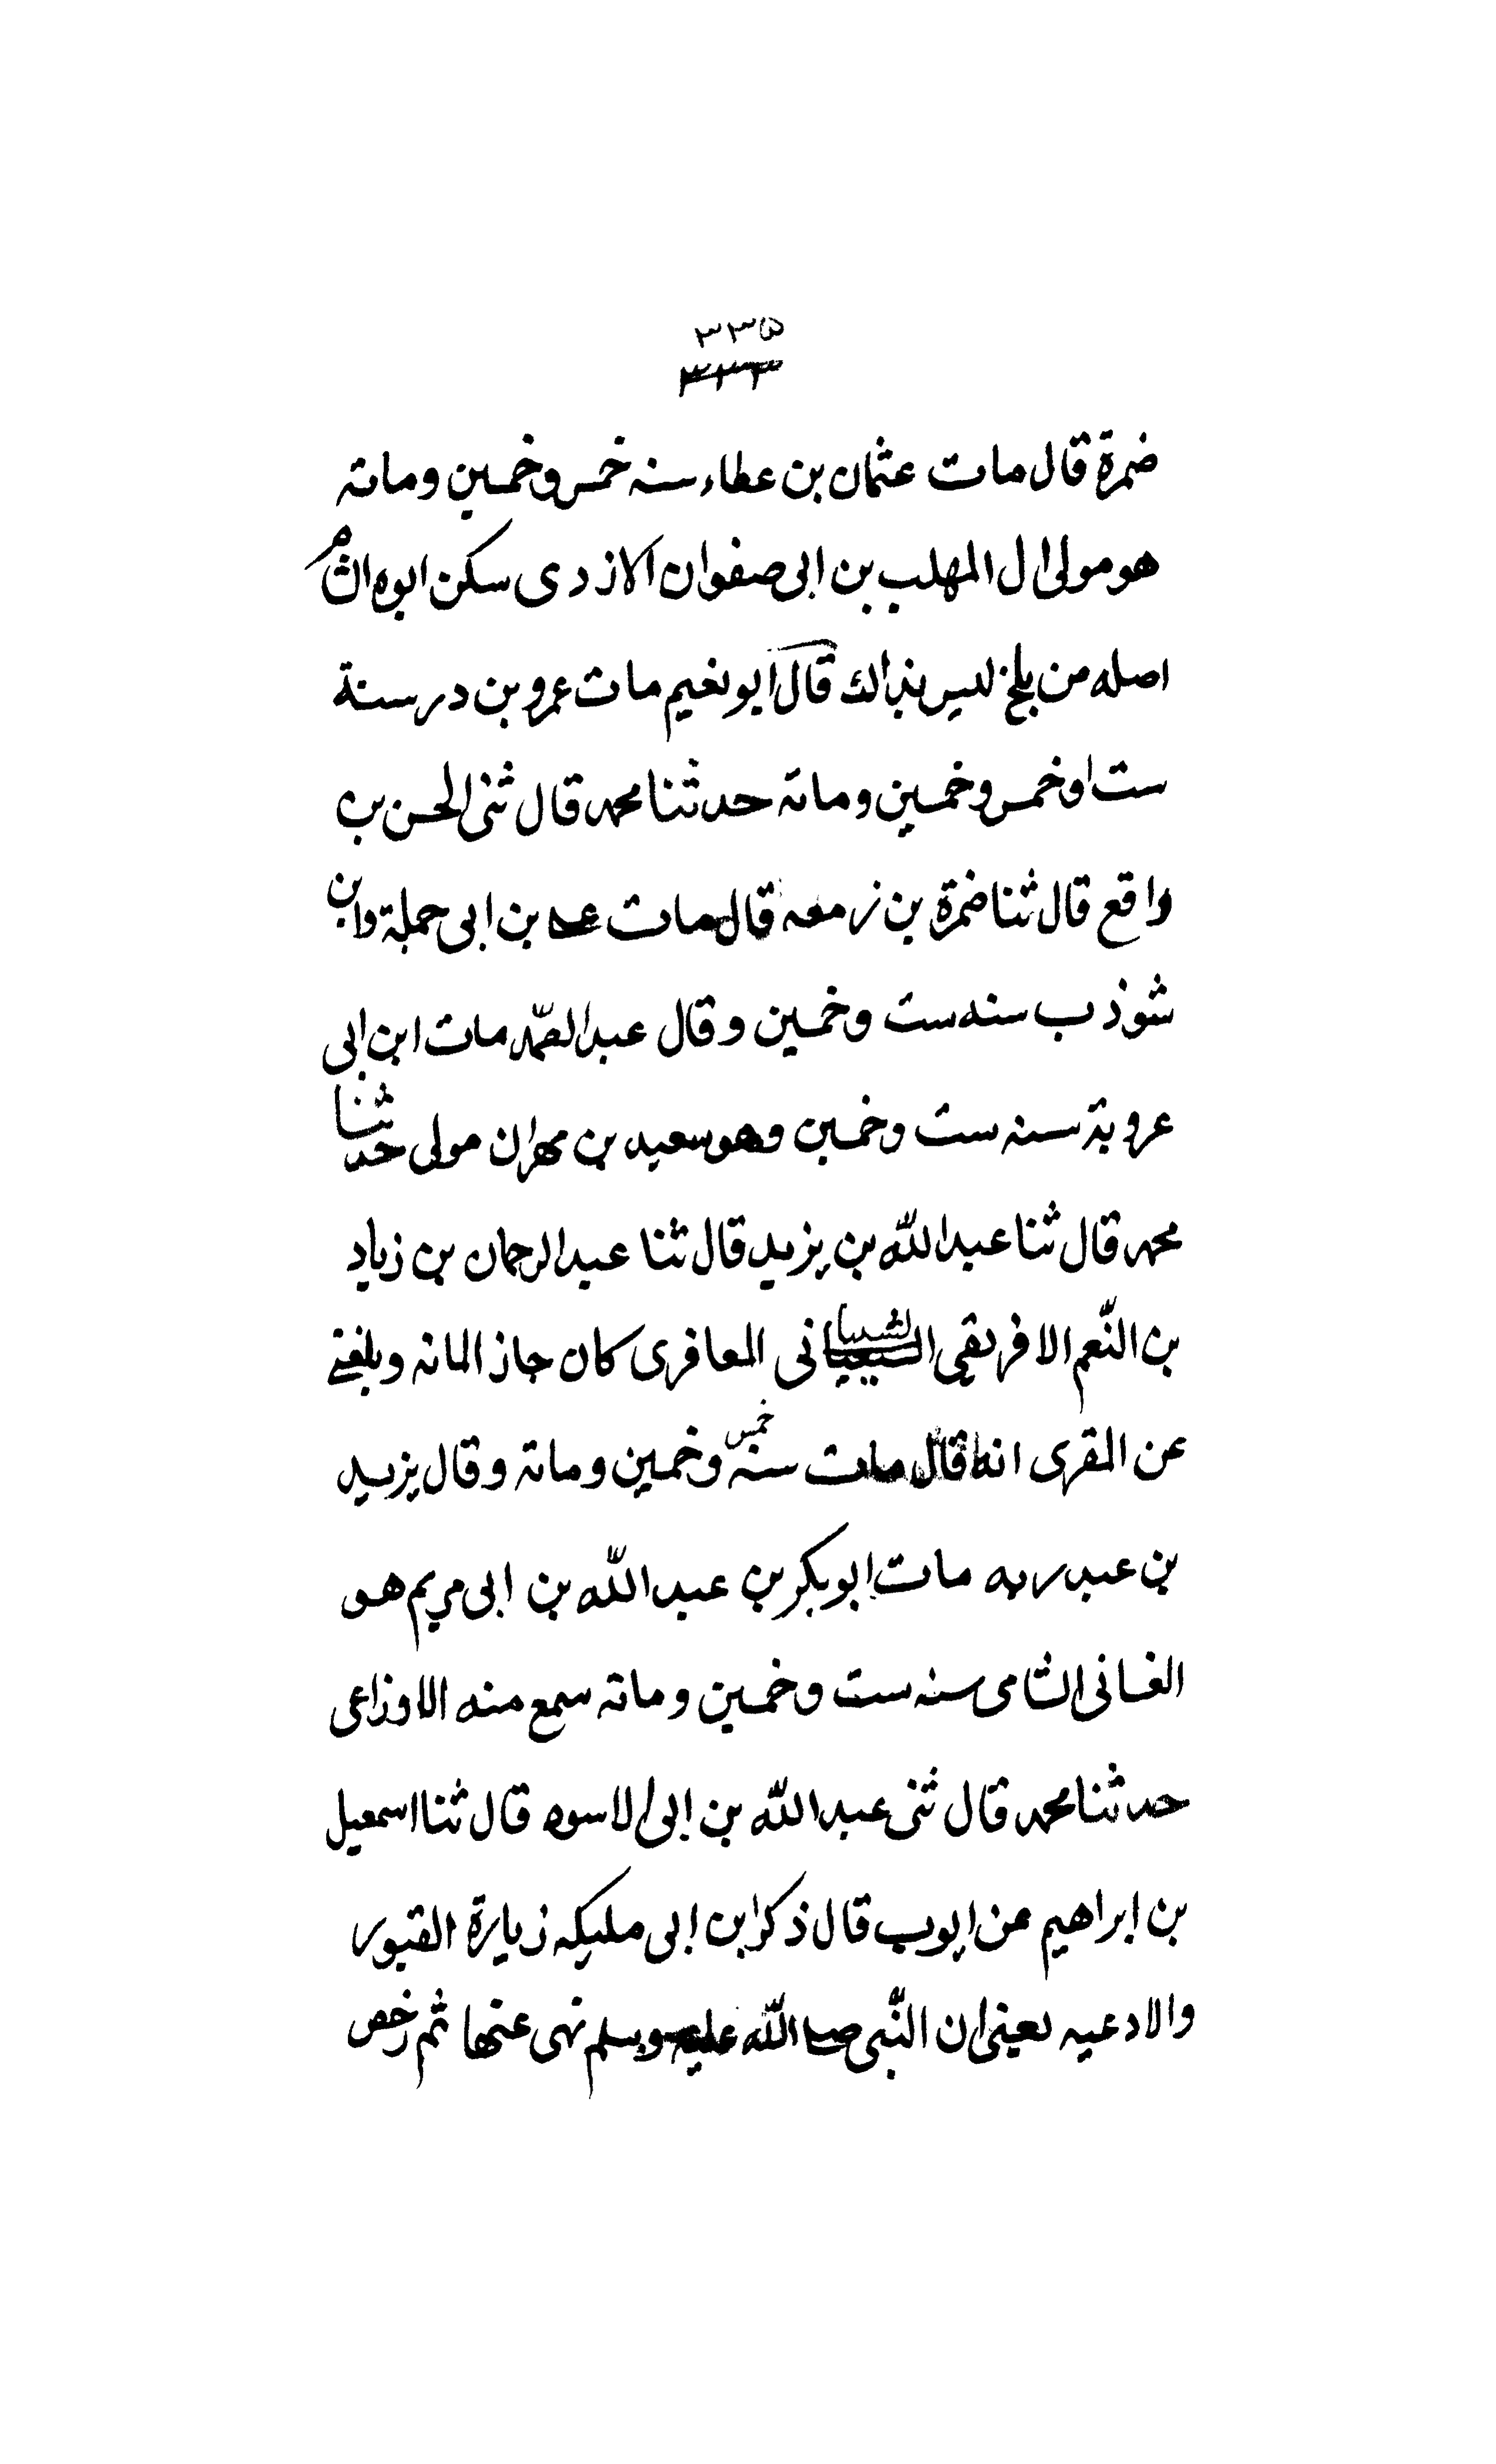 ٣٣٥
٣٣٣
ضمرة قال مات عثمان بن عطاء سنه خمس وخمسين ومائه
هو مولى ال المهلب بن ابى صفوان الازدى سكن ابوه الشام
اصله من بلخ ليس بذاك قال ابو نعيم مات عمرو بن در سنة
ست او خمس وخمسين ومائه حدثنا محمد قال ثنى الحسن بن
واقع قال ثنا ضمرة بن زمعه قال مات بن ابى حملة وابن
شوذب سنه ست وخمسين وقال عبد الصمد مات ابن ابى
عروبة سنه ست وخمسين وهو سعيد بن مهران مولى حدثنا
محمد قال ثنا عبد الله بن يزيد قال ثنا عبد الرحمان بن زياد
بن النعم الافريقى الشيبانى المعافرى كان جاز المائه وبلغنى
عن المقرى انه قال مات سنه خمس وخمسين ومائة وقال يزيد
بن عبد ربه مات ابو بكر بن عبد الله بن ابى مريم هو
الغسانى الشامى سنه ست وخمسين ومائه سمع منه الاوزاعى
حدثنا محمد قال ثنى عبد الله بن ابى الاسود قال ثنا اسمعيل
بن ابراهيم عن ايوب قال ذكر ابن ابى مليكه زيارة القبور
والادعيه يعنى ان النبى صلى الله عليه وسلم نهى عنها ثم رخص